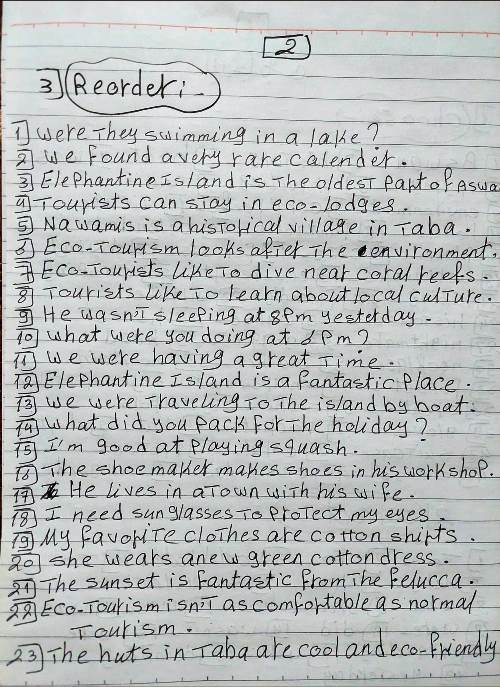 2
3] Reorder:-
1] Were They swimming in a lake?
2] We found a very rare calender.
3] Elephantine Island is The oldest part of Aswa
4] Tourists can stay in eco-lodges.
5] Nawamis is a historical village in Taba.
6] Eco-Tourism looks after The environment.
7] Eco-Tourists like To dive near coral reefs.
8] Tourists like To learn about local culture.
9] He wasn't sleeping at 8pm yesterday.
10] What were you doing at 6 pm?
11] We were having a great Time.
12] Elephantine Island is a fantastic place.
13] We were Traveling To The island by boat.
14] What did you pack for The holiday?
15] I'm good at playing squash.
16] The shoe maker makes shoes in his workshop.
17] He lives in a Town with his wife.
18] I need sunglasses To protect my eyes.
19] My favorite clothes are cotton shirts.
20] She wears a new green cotton dress.
21] The sunset is fantastic from The felucca.
22] Eco-Tourism isn't as comfortable as normal
Tourism.
23] The huts in Taba are cool and eco-friendly